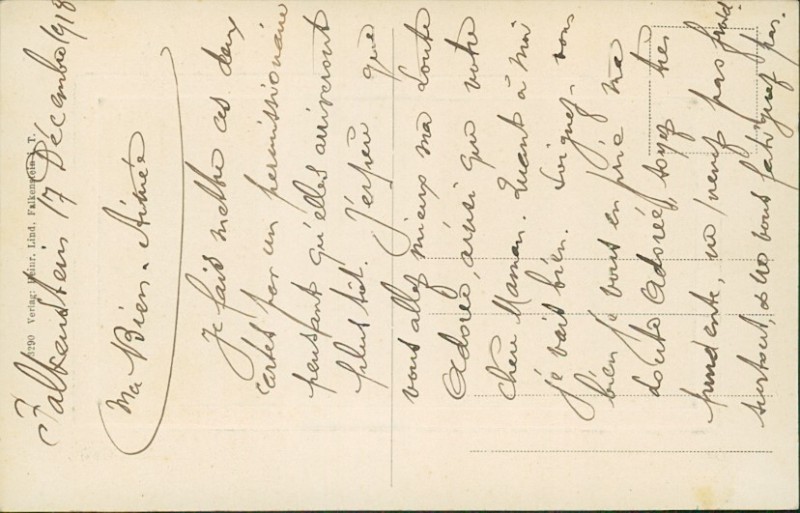 Falkenstein 17 Décembre 1918
Ma Bien-Aimée
Je fais mettre ces deux
cartes par un permissionnaire
pensant qu'elles arriveront
plus tôt. J'espère que
vous allez mieux ma Toute
Adorée, ainsi que votre
chère Maman. Quant à moi
je vais bien. Soignez-vous
bien je vous en prie ma
toute Adorée, soyez très
prudente, ne venez pas froid
surtout, & ne vous fatiguez pas.
3290 Verlag: Heinr. Lind, Falkenstein i. T.